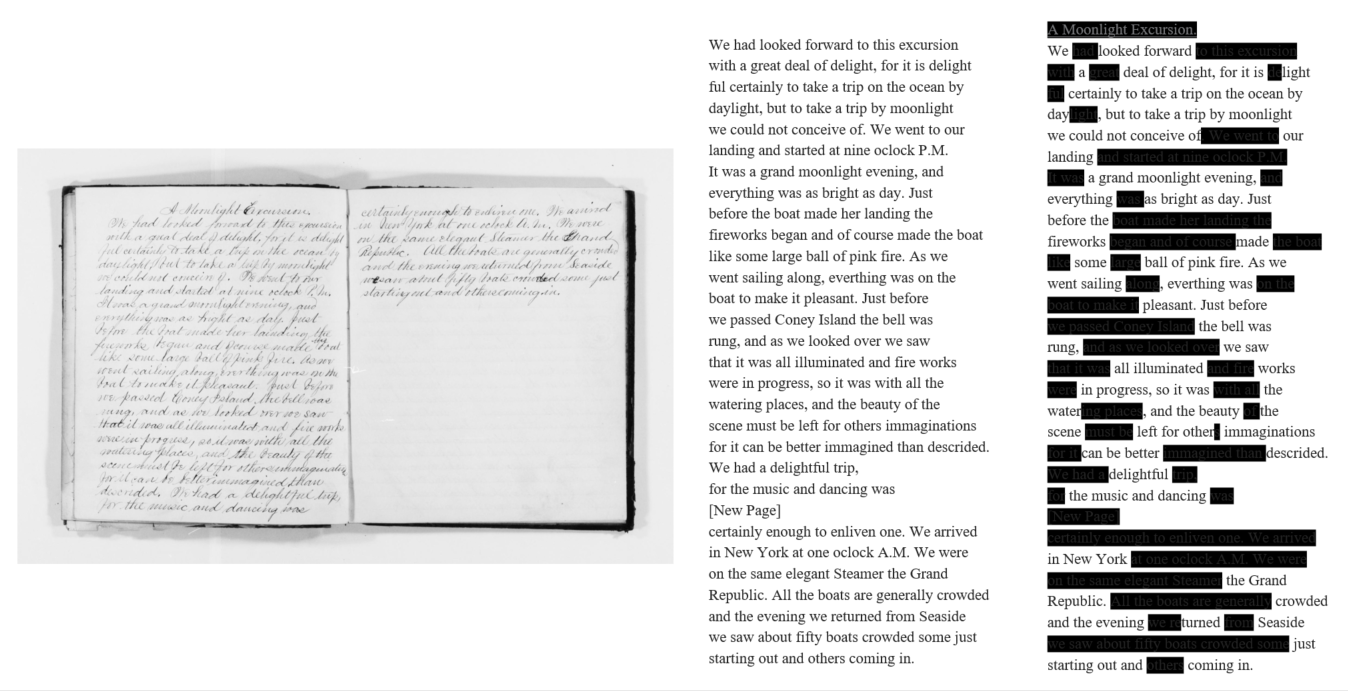 A Moonlight Excursion.
We had looked forward to this excursion
with a great deal of delight, for it is delight
ful certainly to take a trip on the ocean by
daylight, but to take a trip by moonlight
we could not conceive of. We went to our
landing and started at nine oclock P.M.
It was a grand moonlight evening, and
everything was as bright as day. Just
before the boat made her landing the
fireworks began and of course made the boat
like some large ball of pink fire. As we
went sailing along, everthing was on the
boat to make it pleasant. Just before
we passed Coney Island, the bell was
rung, and as we looked over we saw
that it was all illuminated and fire works
were in progress, so it was with all the
watering places, and the beauty of the
scene must be left for others immaginations
for it can be better immagined than
descrided. We had a delightful trip,
for the music and dancing was
certainly enough to enliven one. We arrived
in New York at one oclock A.M. We were
on the same elegant Steamer the Grand
Republic. All the boats are generally crowded
and the evening we returned from Seaside
we saw about fifty boats crowded some just
starting out and others coming in.
We had looked forward to this excursion
with a great deal of delight, for it is delight
ful certainly to take a trip on the ocean by
daylight, but to take a trip by moonlight
we could not conceive of. We went to our
landing and started at nine oclock P.M.
It was a grand moonlight evening, and
everything was as bright as day. Just
before the boat made her landing the
fireworks began and of course made the boat
like some large ball of pink fire. As we
went sailing along, everthing was on the
boat to make it pleasant. Just before
we passed Coney Island the bell was
rung, and as we looked over we saw
that it was all illuminated and fire works
were in progress, so it was with all the
watering places, and the beauty of the
scene must be left for others immaginations
for it can be better immagined than descrided.
We had a delightful trip,
for the music and dancing was
[New Page]
certainly enough to enliven one. We arrived
in New York at one oclock A.M. We were
on the same elegant Steamer the Grand
Republic. All the boats are generally crowded
and the evening we returned from Seaside
we saw about fifty boats crowded some just
starting out and others coming in.
A Moonlight Excursion.
We had looked forward to this excursion
with a great deal of delight, for it is delight
ful certainly to take a trip on the ocean by
daylight, but to take a trip by moonlight
we could not conceive of. We went to our
landing and started at nine oclock P.M.
It was a grand moonlight evening, and
everything was as bright as day. Just
before the boat made her landing the
fireworks began and of course made the boat
like some large ball of pink fire. As we
went sailing along, everthing was on the
boat to make it pleasant. Just before
we passed Coney Island the bell was
rung, and as we looked over we saw
that it was all illuminated and fire works
were in progress, so it was with all the
watering places, and the beauty of the
scene must be left for others immaginations
for it can be better immagined than descrided.
We had a delightful trip,
for the music and dancing was
[New Page]
certainly enough to enliven one. We arrived
in New York at one oclock A.M. We were
on the same elegant Steamer the Grand
Republic. All the boats are generally crowded
and the evening we returned from Seaside
we saw about fifty boats crowded some just
starting out and others coming in.